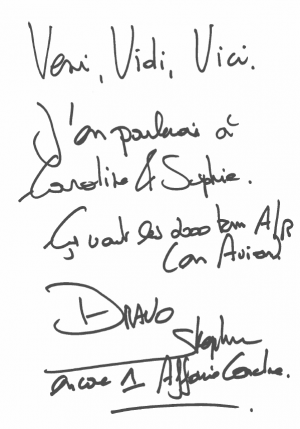 Veni, Vidi, Vici.
J'en parlerai à
Caroline & Sophie.
Ça vaut les 2000 km A/R
en Avion
BRAVO
Stephen
encore 1 Affaire Conclue.